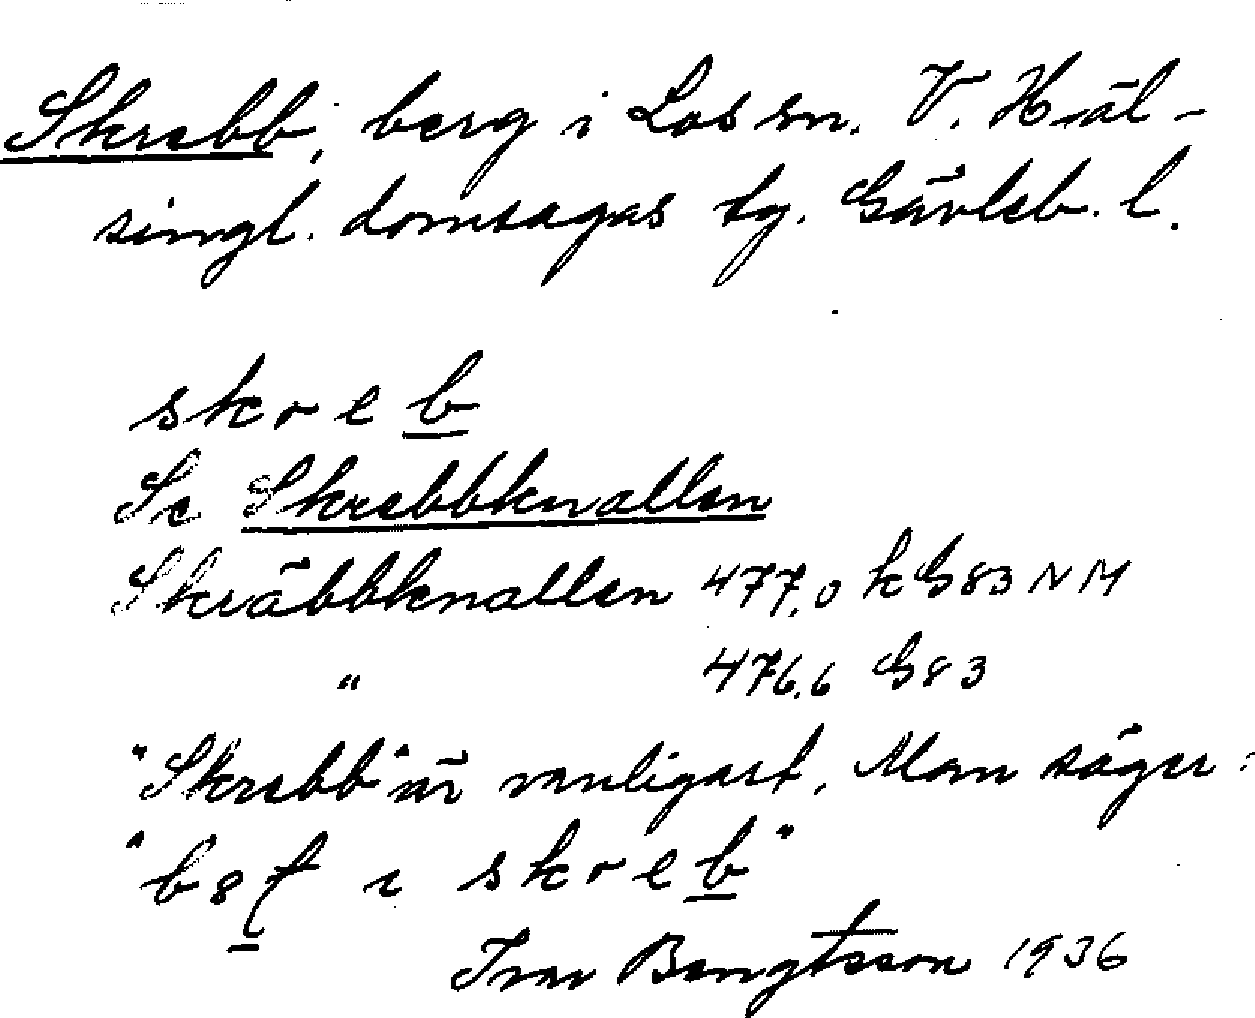 Skrebb, berg i Los sn. V. Häl-
singl. domsagas tg. Gävleb. l.
skreb
Se Skrebbknallen
Skräbbknallen 477,0 h G83 NM
" 476,6 G83
"Skrebb" är vanligast. Man säger:
i skreb"
Ivar Bengtsson 1936